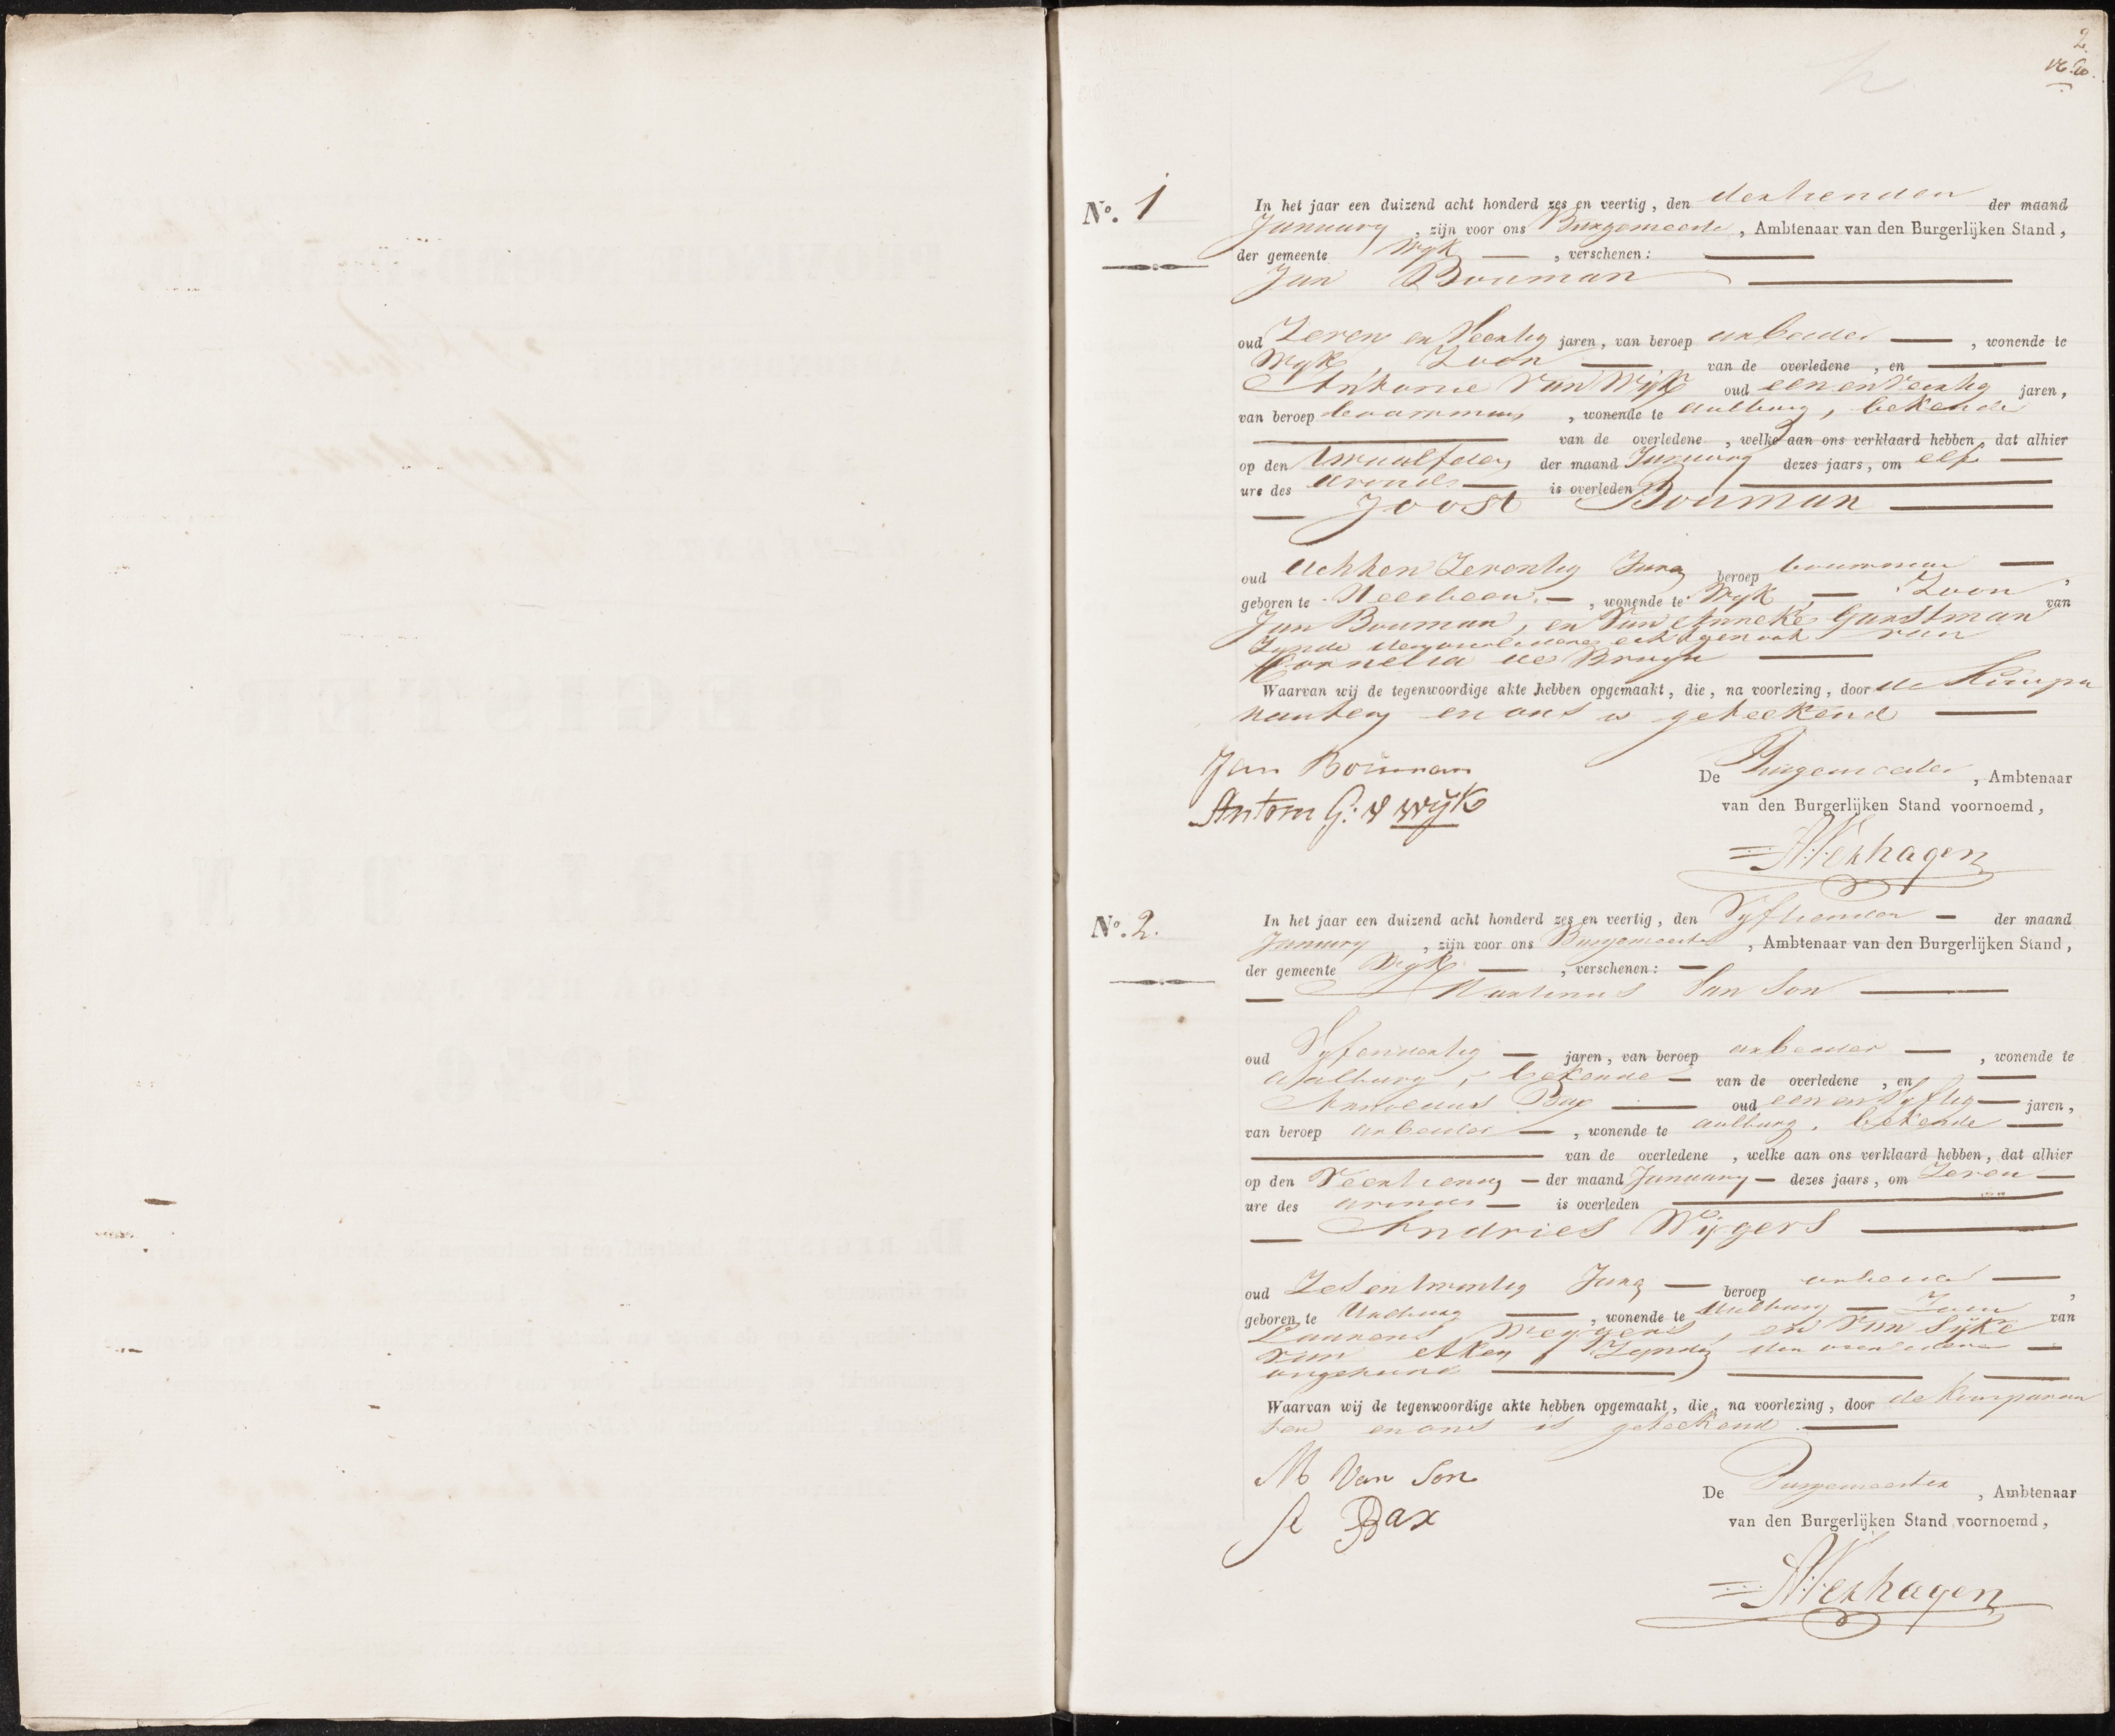 2.
No. 1
In het jaar een duizend acht honderd zes en veertig, den dertienden der maand
January, zijn voor ons Burgemeester, Ambtenaar van den Burgerlijken Stand,
der gemeente Wyk, verschenen:
Jan Bouman
oud Zeven en Veertig jaren, van beroep arbeider, wonende te
Wyk, Zoon van de overledene, en
Anthonie van Wijk oud een en Veertig jaren,
van beroep bouwman, wonende te Aalburg, bekende
van de overledene, welke aan ons verklaard hebben, dat alhier
op den twaalfden der maand January dezes jaars, om elf
ure des avonds is overleden
Joost Bouman
oud Acht en Zeventig Jaren beroep bouwman,
geboren te Meeuwen, wonende te Wyk, Zoon van
Jan Bouman, en van Anneke Garstman
Zynde de overledene echtgenoot van
Cornelia de Bruyn
Waarvan wij de tegenwoordige akte hebben opgemaakt, die, na voorlezing, door de Kompa
ranten en ons is geteekend
Jan Bouman
De Burgemeester, Ambtenaar
Antoni G: v wijk
van den Burgerlijken Stand voornoemd,
Verhagen
No. 2.
In het jaar een duizend acht honderd zes en veertig, den Vyftienden der maand
January, zijn voor ons Burgemeester, Ambtenaar van den Burgerlijken Stand,
der gemeente Wyk, verschenen:
Martinus Van Son
oud Vyfendertig jaren, van beroep arbeider, wonende te
Aalburg, bekende van de overledene, en
Arnoldus Bax oud een en Vyftig jaren,
van beroep arbeider, wonende te Aalburg, bekende
van de overledene, welke aan ons verklaard hebben, dat alhier
op den Veertienden der maand January dezes jaars, om Zeven
ure des avonds is overleden
Andries Wijgers
oud Zesentwintig Jaren beroep arbeider,
geboren te Aalburg, wonende te Aalburg Zoon van
Laurens Weijgers, en van Sijke
van Aken, Zynde den overledene
ongehuwd
Waarvan wij de tegenwoordige akte hebben opgemaakt, die, na voorlezing, door de Komparan
ten en ons is geteekend.
M Van Son
De Burgemeester, Ambtenaar
A Bax
van den Burgerlijken Stand voornoemd,
Verhagen